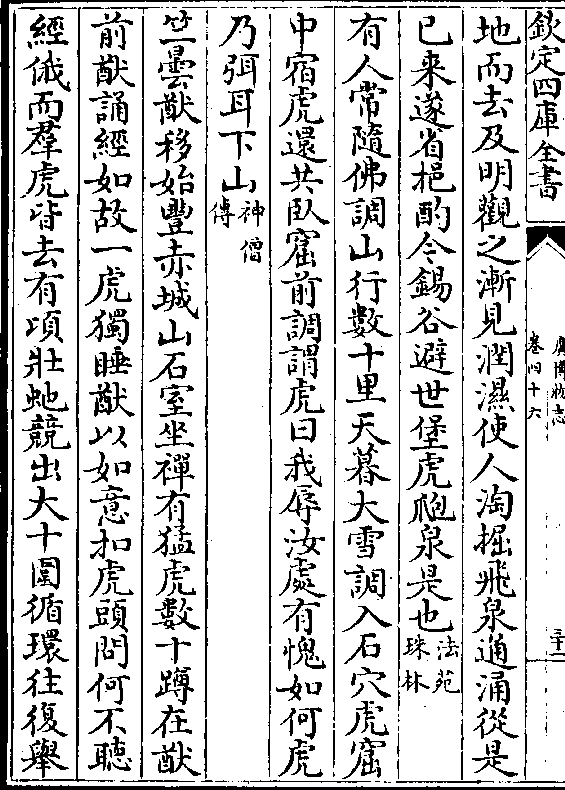 欽定四庫全書
廣博物志
卷四十六
三十二
地而去及明觀之漸見潤濕使人淘掘飛泉通涌從是
已来遂省挹酌今錫谷避世堡虎爮泉是也法苑珠林
有人常隨佛調山行數十里天暮大雪調入石穴虎窟
中宿虎還共臥窟前調謂虎曰我辱汝處有愧如何虎
乃弭耳下山神僧傳
竺曇猷移始豐赤城山石室坐禪有猛虎數十蹲在猷
前猷誦經如故一虎獨睡猷以如意扣虎頭問何不聽
經俄而羣虎皆去有頃壯虵競出大十圍循環往復舉